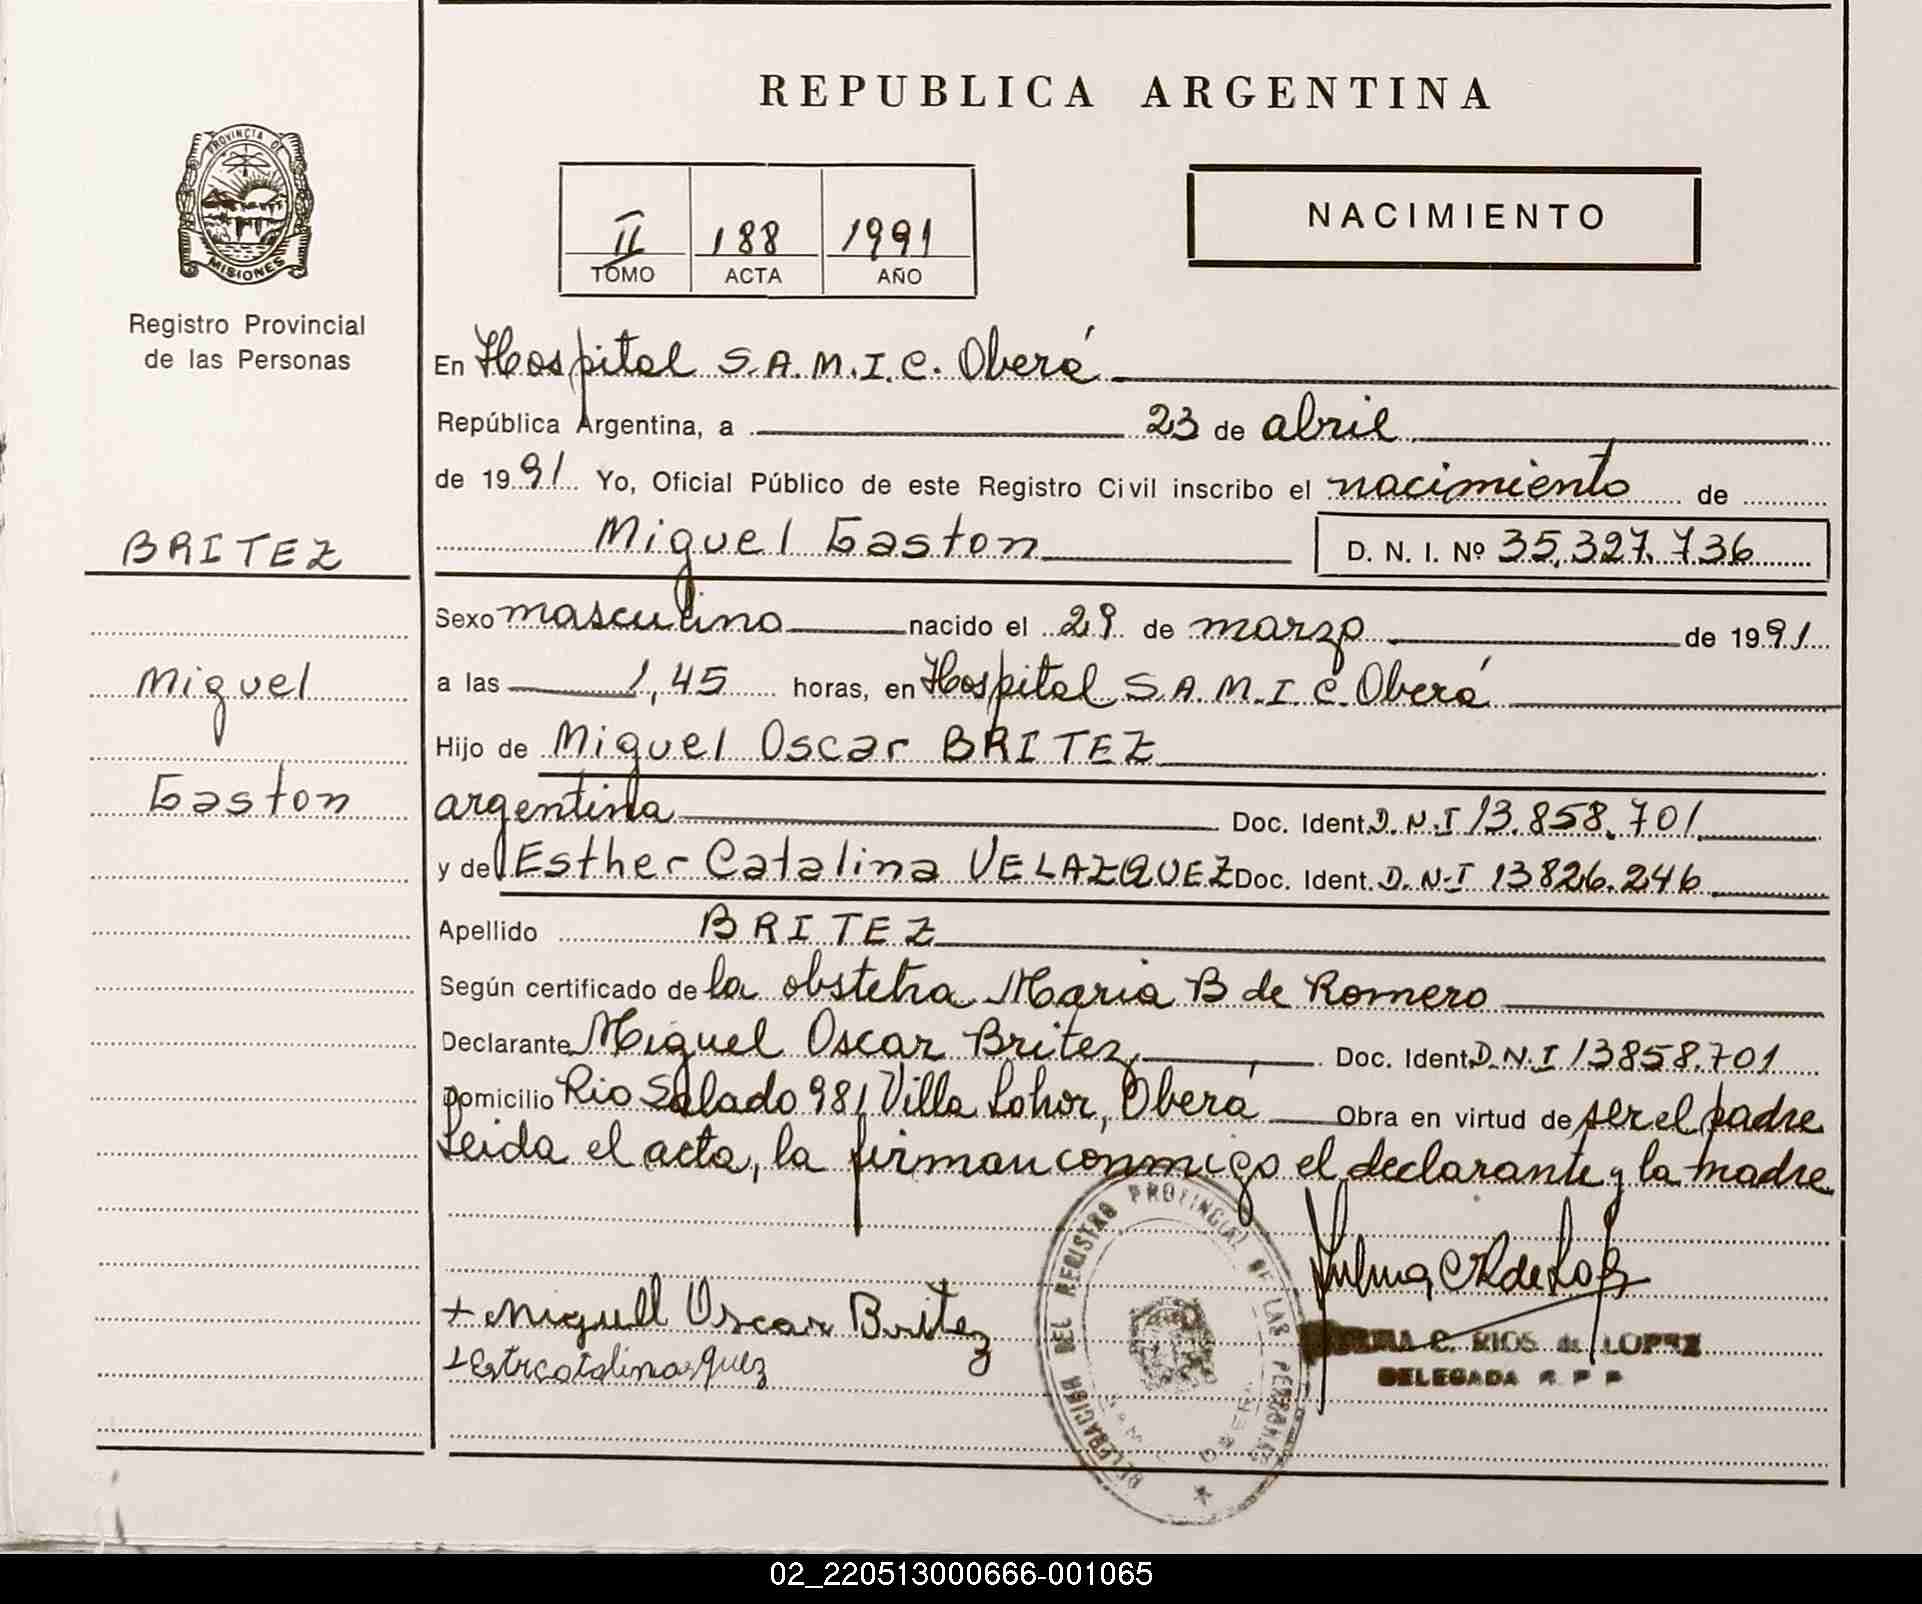 REPUBLICA ARGENTINA
PROVINCIA DE
MISIONES
Registro Provincial
de las Personas
II 188 1991
TOMO ACTA AÑO
NACIMIENTO
En Hospital S.A.M.I.C. Oberá
República Argentina, a 23 de abril
de 1991 Yo, Oficial Público de este Registro Civil inscribo el nacimiento de
BRITEZ
Miguel Gaston D. N. I. Nº 35.327.736
Sexo masculino nacido el 29 de marzo de 1991
Miguel
a las 1,45 horas, en Hospital S.A.M.I.C. Oberá
Hijo de Miguel Oscar BRITEZ
Gaston
argentina Doc. Ident. D.N.I 13.858.701
y de Esther Catalina VELAZQUEZ Doc. Ident. D.N.I 13826.246
Apellido BRITEZ
Según certificado de la obstetra Maria B de Romero
Declarante Miguel Oscar Britez, Doc. Ident. D.N.I 13858.701
Domicilio Rio Salado 981 Villa Lohor, Oberá Obra en virtud de ser el padre
Leida el acta, la firman conmigo el declarante y la madre
DELEGACION DEL REGISTRO PROVINCIAL DE LAS PERSONAS
+ Miguell Oscar Britez
C. RIOS de LOPEZ
DELEGADA R P P
02_220513000666-001065